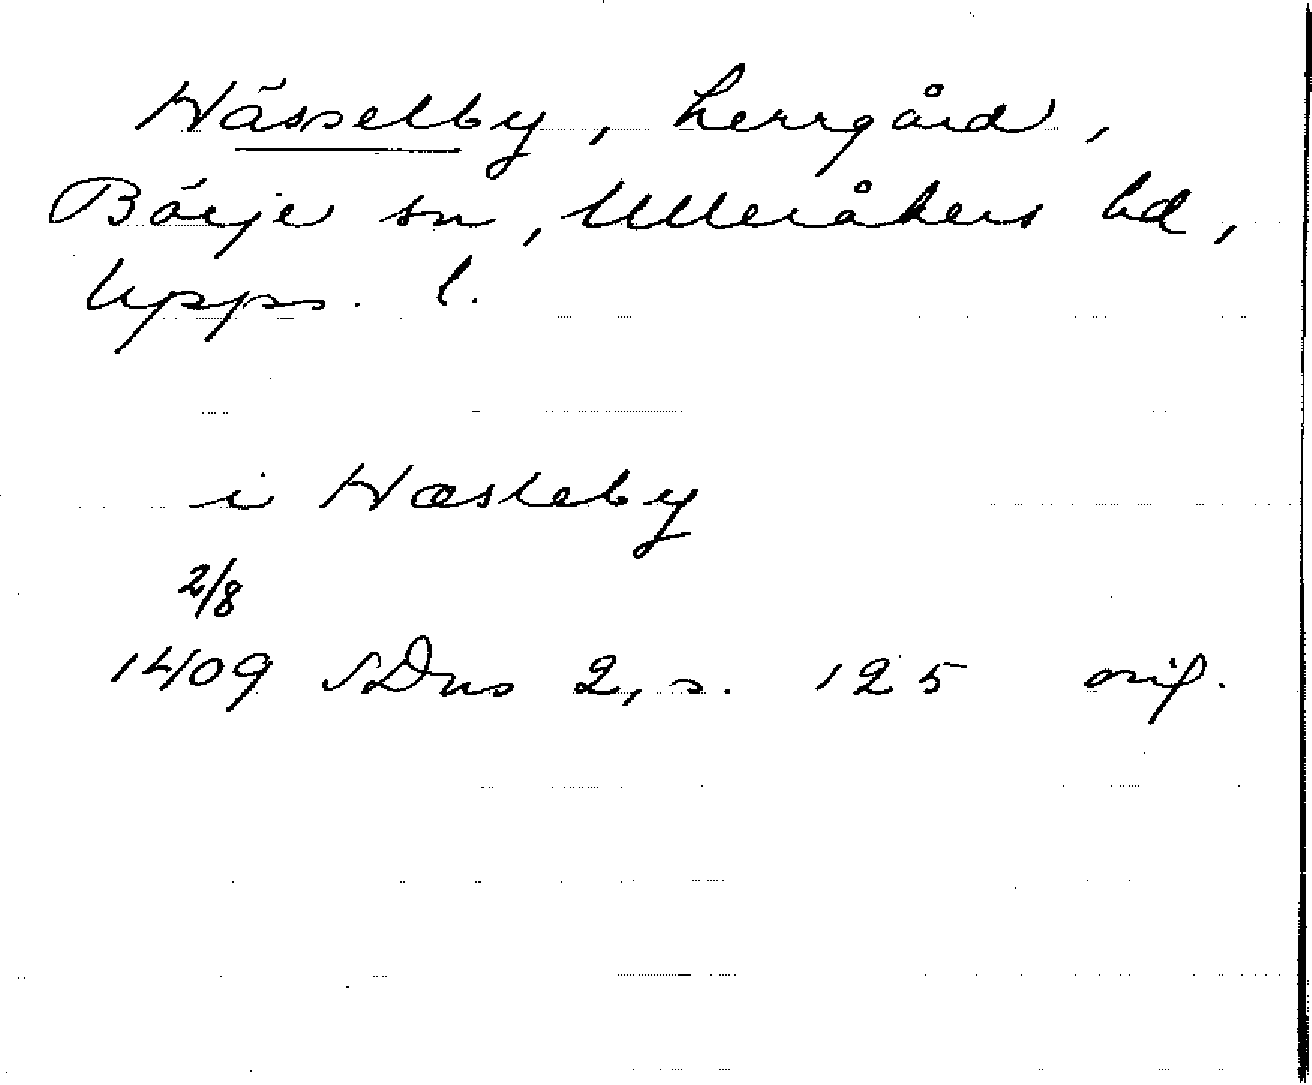 Hässelby, herrgård,
Börje sn, Ulleråkers hd,
Upps. l.
i Hæsleby
2/8
1409 SDns 2, s. 125 orig.